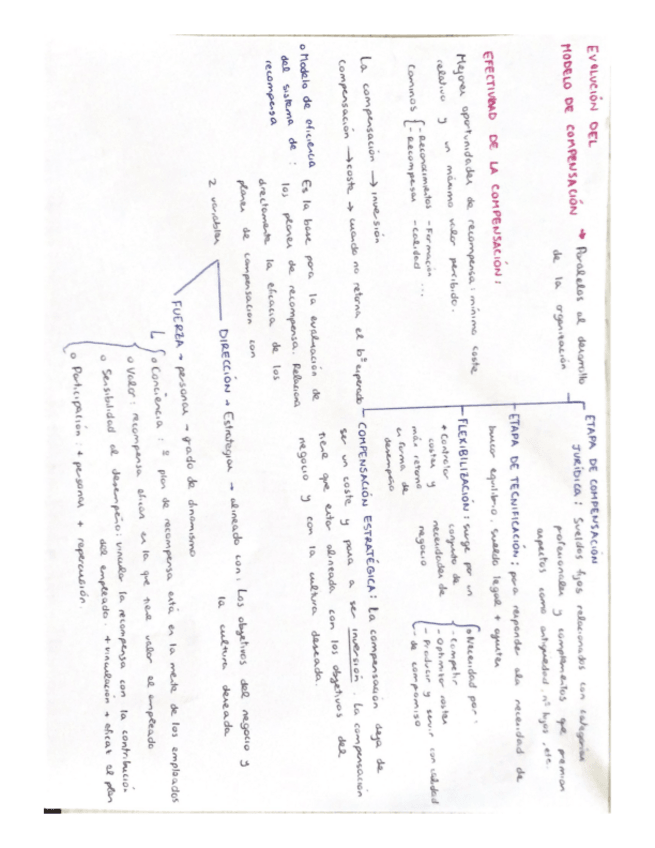 EVOLUCIÓN DEL
MODELO DE COMPENSACIÓN → Paralelos al desarrollo
de la organización
ETAPA DE COMPENSACIÓN
JURÍDICA: Sueldos fijos relacionados con categorías
profesionales y complementos que premian
aspectos como antigüedad, nº hijos, etc.
ETAPA DE TECNIFICACIÓN: para responder a la necesidad de
buscar equilibrio, sueldo legal +
FLEXIBILIZACIÓN: surge por un
conjunto de
necesidades de
negocio
+ Controlar
costes y
más retorno
en forma de
desempeño
o Necesidad por:
- Competir
- Optimizar costes
- Producir y servir con calidad
- de compromiso
COMPENSACIÓN ESTRATÉGICA: La compensación deja de
ser un coste y pasa a ser inversión. La compensación
tiene que estar alineada con los objetivos del
negocio y con la cultura deseada.
EFECTIVIDAD DE LA COMPENSACIÓN:
Mejores oportunidades de recompensa: mínimo coste
relativo y un máximo valor percibido.
Caminos { - Reconocimientos - Formación ...
- Recompensas - Calidad
La compensación → inversión
compensación → coste → cuando no retorna el bº esperado
o Modelo de eficiencia
del sistema de :
recompensa
Es la base para la evaluación de
los planes de recompensa. Relaciona
directamente la eficacia de los
planes de compensación con
2 variables
DIRECCIÓN → Estrategias → alineado con: Los objetivos del negocio y
la cultura deseada
FUERZA → personas → grado de dinamismo
o Conciencia: plan de recompensa está en la mente de los empleados
o Valor: recompensa eficaz en la que tiene valor el empleado
o Sensibilidad al desempeño: vincular la recompensa con la contribución
del empleado. + vinculación + eficaz el plan
o Participación: + personas + repercusión.